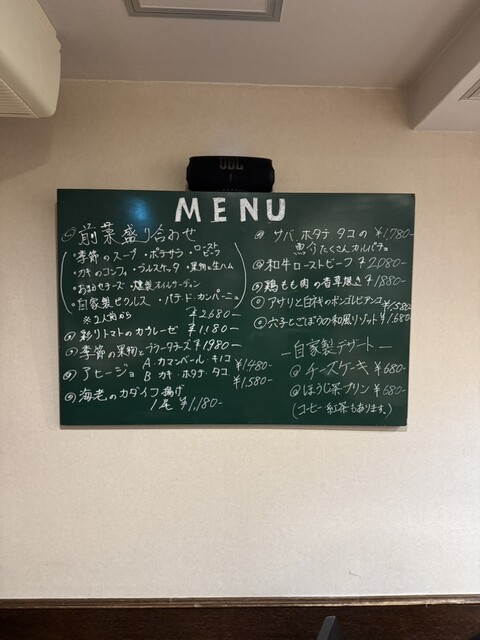 JBL
MENU
前菜盛り合わせ
・季節のスープ ・ポテサラ ・ローストビーフ
・カキのコンフィ ・ブルスケッタ ・果物と生ハム
・おまかせチーズ ・燻製オイルサーディン
・自家製ピクルス ・パテ・ド・カンパーニュ
※2人前から ¥2,680-
彩りトマトのカプレーゼ ¥1,180-
季節の果物とブラータチーズ ¥1,980-
アヒージョ A.カマンベール・キノコ ¥1,480-
B カキ・ホタテ・タコ ¥1,580-
海老のカダイフ揚げ
1尾 ¥1,180-
サバ、ホタテ タコの ¥1,780-
魚介たくさんカルパッチョ
和牛ローストビーフ ¥2,080-
鶏もも肉の香草焼き ¥1,880-
アサリと白味のボンゴレビアンコ ¥1,580-
穴子とごぼうの和風リゾット ¥1,680-
—自家製デザート—
チーズケーキ ¥680-
ほうじ茶プリン ¥680-
(コーヒー 紅茶もあります。)